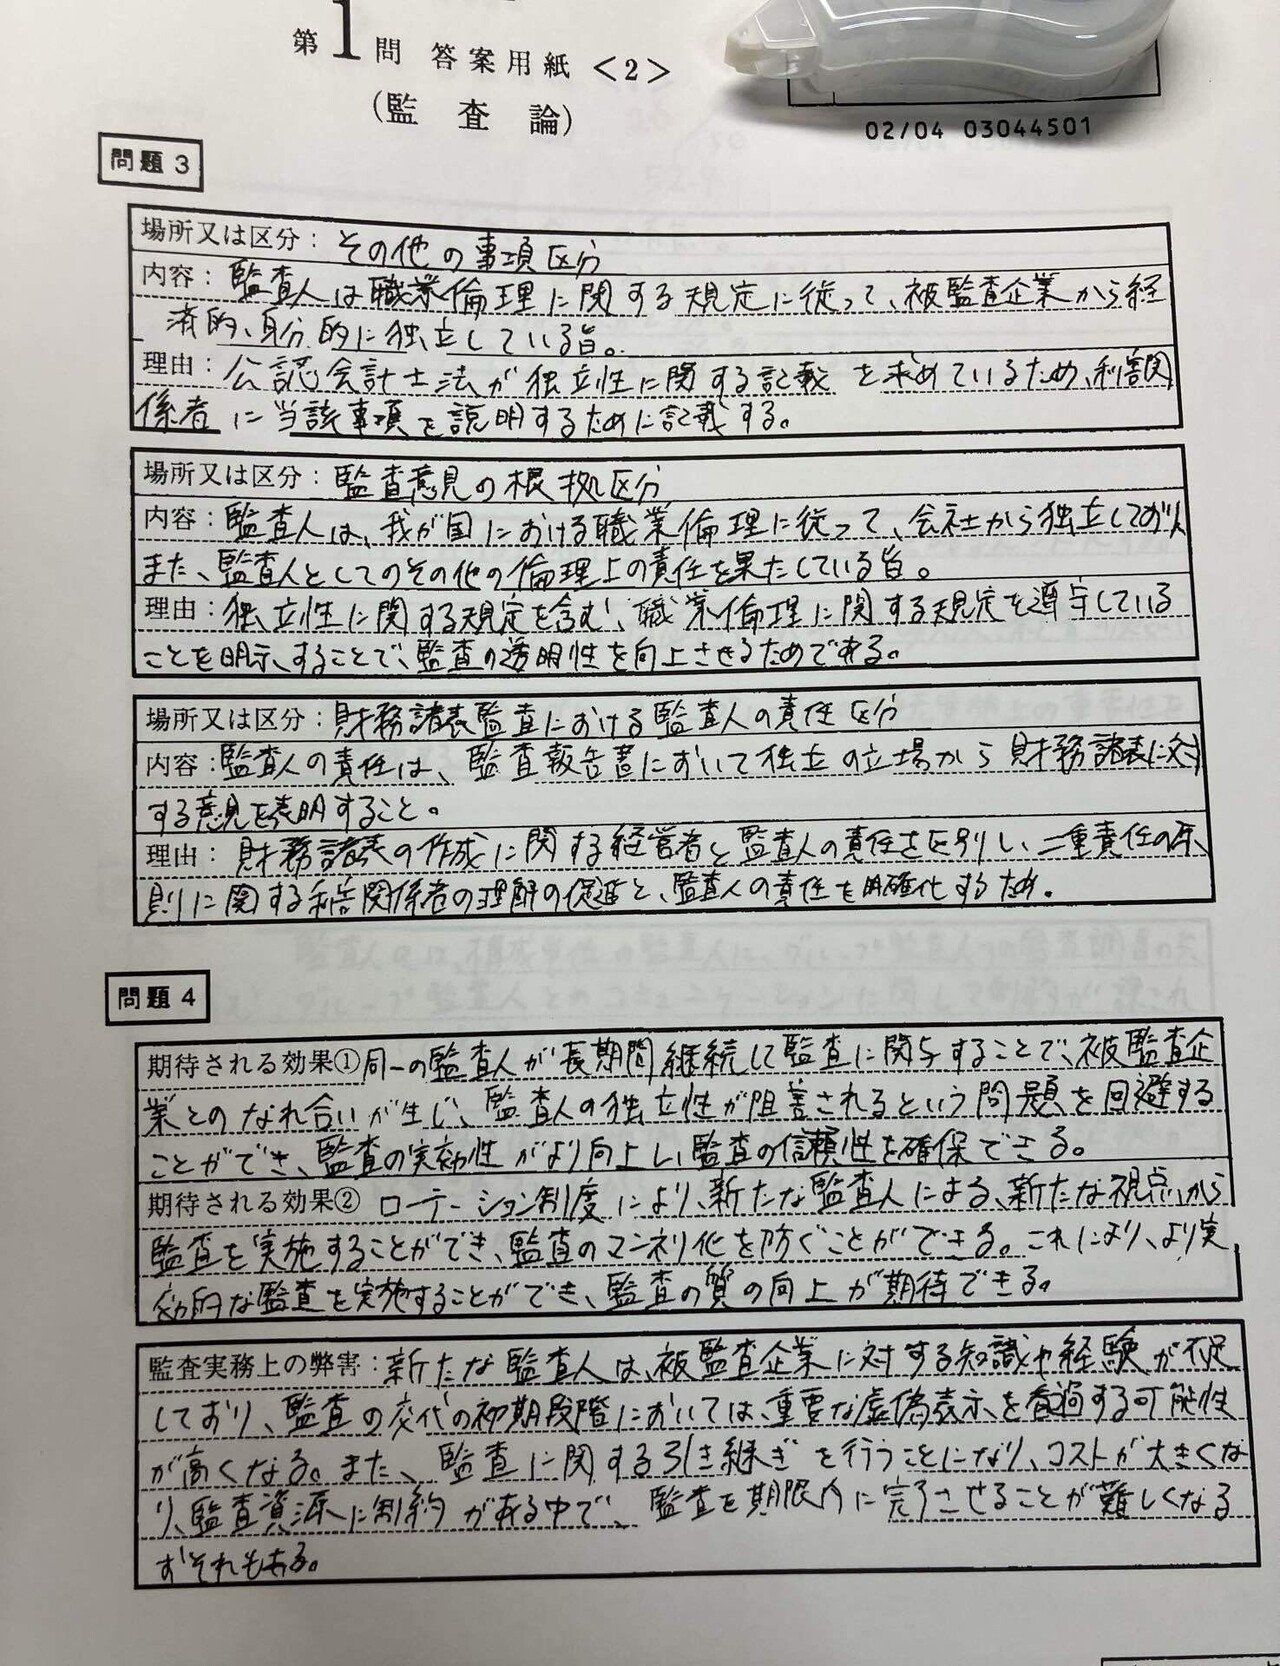 第1問 答案用紙<2>
(監査論)
02/04 03044501
問題3
場所又は区分:その他の事項区分
内容:監査人は職業倫理に関する規定に従って、被監査企業から経
済的、身分的に独立している旨。
理由:公認会計士法が独立性に関する記載を求めているため、利害関
係者に当該事項を説明するために記載する。
場所又は区分:監査意見の根拠区分
内容:監査人は、我が国における職業倫理に従って、会社から独立しており、
また、監査人としてのその他の倫理上の責任を果たしている旨。
理由:独立性に関する規定を含む、職業倫理に関する規定を遵守している
ことを明示することで、監査の透明性を向上させるためである。
場所又は区分:財務諸表監査における監査人の責任区分
内容:監査人の責任は、監査報告書において独立の立場から財務諸表に対
する意見を表明すること。
理由:財務諸表の作成に関する経営者と監査人の責任を区別し、二重責任の原
則に関する利害関係者の理解の促進と、監査人の責任を明確化するため。
問題4
期待される効果①同一の監査人が長期間継続して監査に関与することで、被監査企
業とのなれ合いが生じ、監査人の独立性が阻害されるという問題を回避する
ことができ、監査の実効性がより向上し、監査の信頼性を確保できる。
期待される効果②ローテーション制度により、新たな監査人による、新たな視点から
監査を実施することができ、監査のマンネリ化を防ぐことができる。これにより、より実
効的な監査を実施することができ、監査の質の向上が期待できる。
監査実務上の弊害:新たな監査人は、被監査企業に対する知識や経験が不足
しており、監査の交代の初期段階においては、重要な虚偽表示を看過する可能性
が高くなる。また、監査に関する引き継ぎを行うことになり、コストが大きくな
り、監査資源に制約がある中で、監査を期限内に完了させることが難しくなる
おそれもある。